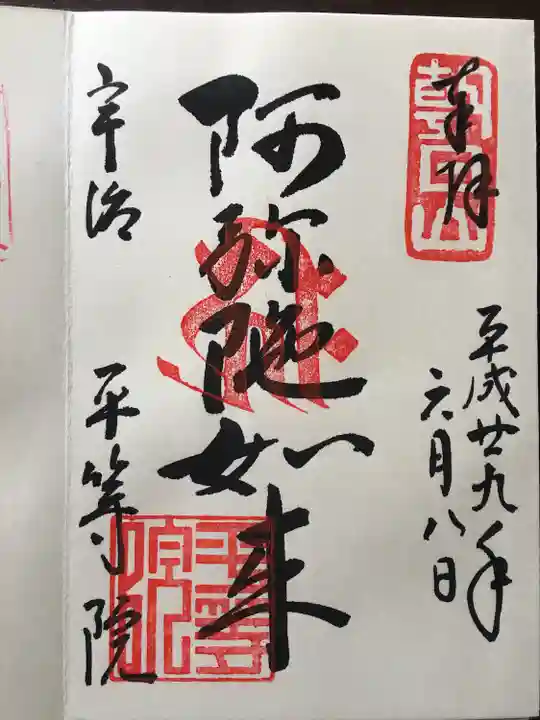 奉拝
朝日山
平成廿九年
六月八日
阿弥陀如来
宇治 平等院
平等院